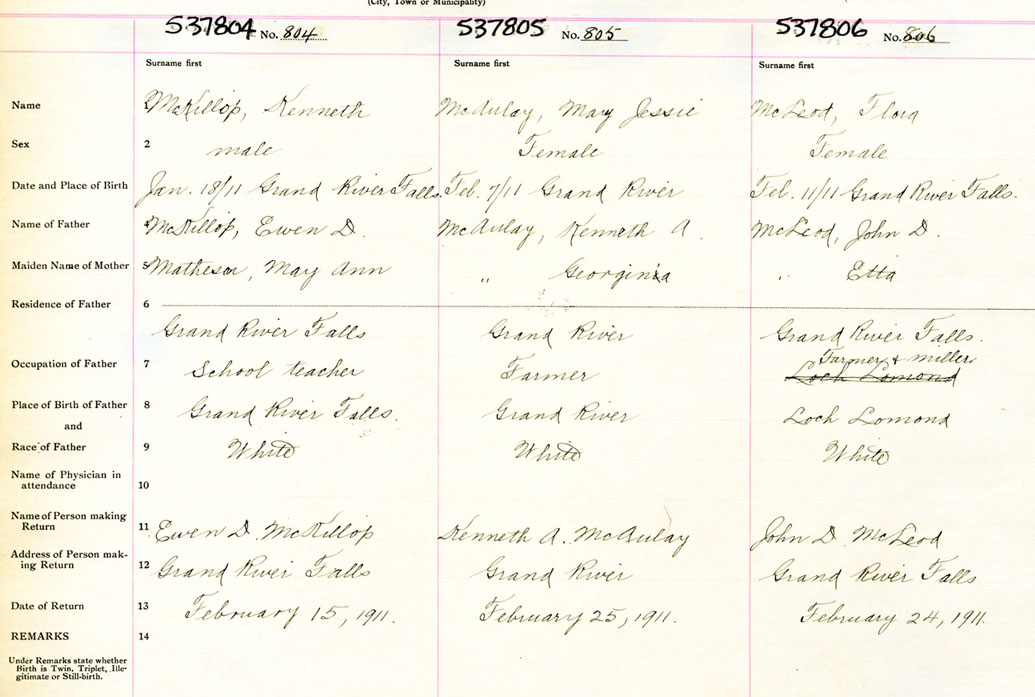 (City, Town or Municipality)
537804 No. 804 537805 No. 805 537806 No. 806
Surname first Surname first Surname first
Name 1 McKillop, Kenneth McAulay, Mary Jessie McLeod, Flora
Sex 2 male Female Female
Date and Place of Birth Jan. 18/11 Grand River Falls. Feb. 7/11 Grand River Feb. 11/11 Grand River Falls.
Name of Father 4 McKillop, Ewen D. McAulay, Kenneth A. McLeod, John D.
Maiden Name of Mother 5 Matheson, May Ann " Georginia " Etta
Residence of Father 6
Grand River Falls Grand River Grand River Falls.
Farmer & miller
Occupation of Father 7 School teacher Farmer Loch Lomond
Place of Birth of Father 8 Grand River Falls. Grand River Loch Lomond
and
Race of Father 9 White White White
Name of Physician in
attendance 10
Name of Person making
Return 11 Ewen D. McKillop Kenneth A. McAulay John D. McLeod
Address of Person mak-
ing Return 12 Grand River Falls Grand River Grand River Falls
Date of Return 13 February 15, 1911. February 25, 1911. February 24, 1911.
REMARKS 14
Under Remarks state whether
Birth is Twin, Triplet, Ille-
gitimate or Still-birth.